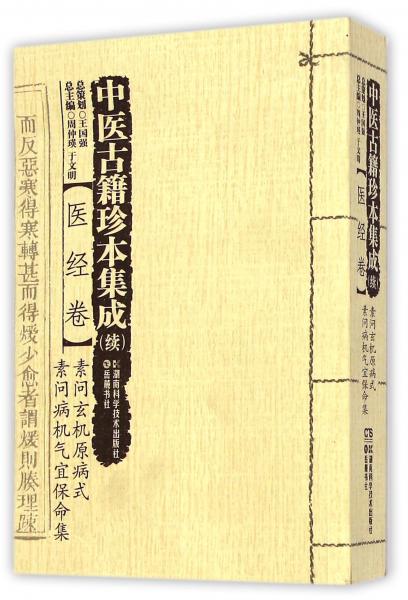 中医古籍珍本集成(续)
【医经卷】
总策划○王国强
总主编○周仲瑛 于文明
素问玄机原病式
素问病机气宜保命集
湖南科学技术出版社
岳麓书社
而反惡寒得寒轉甚而得煖少愈者謂煖則腠理疎
中医古籍珍本集成(续)
总策划○王国强
总主编○周仲瑛 于文明
【医经卷】
素问玄机原病式
素问病机气宜保命集
湖南科学技术出版社
岳麓书社